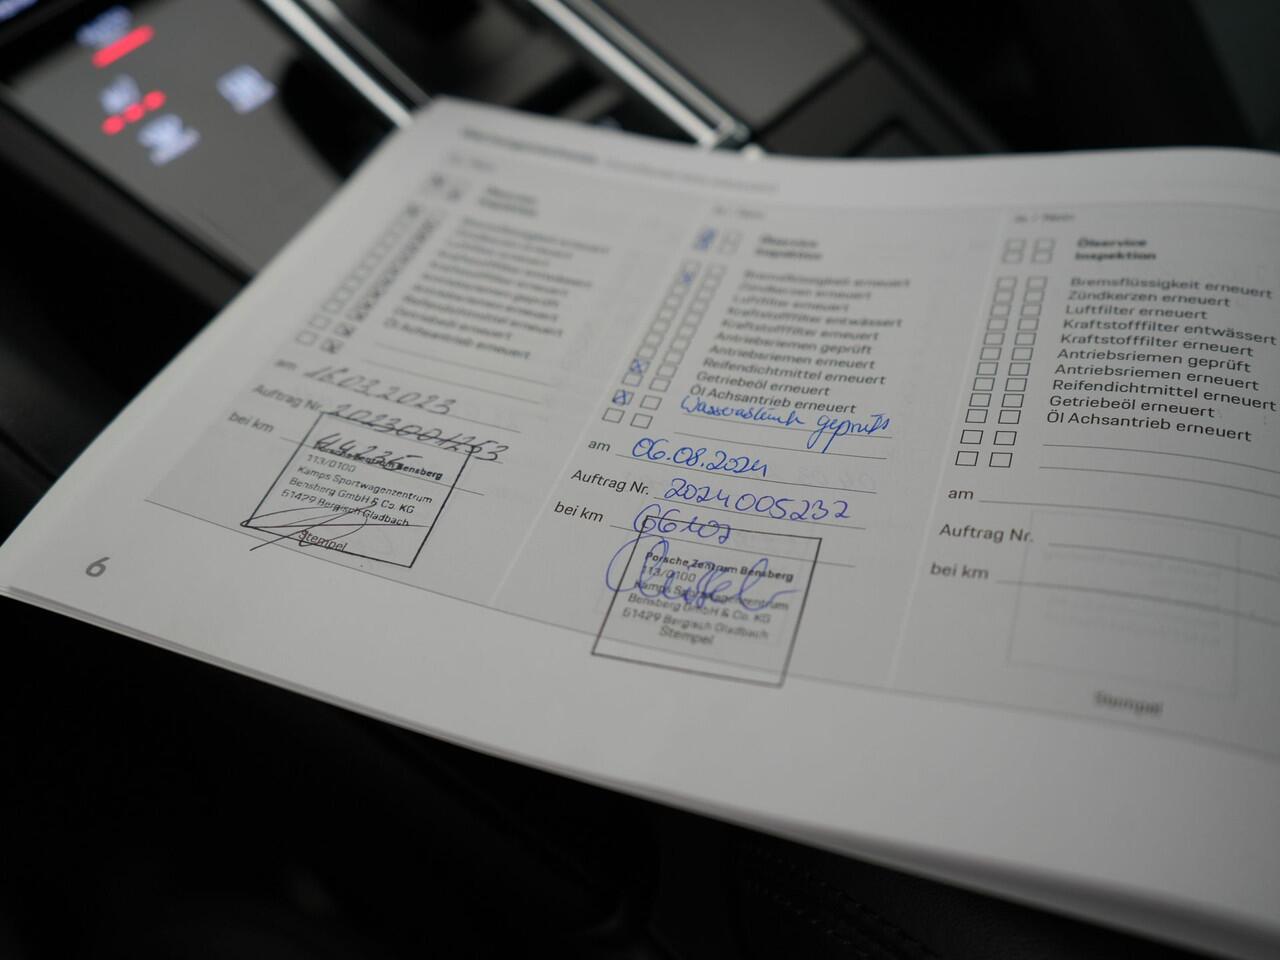 Ölservice
Inspektion
Öl Achsantrieb erneuert
am 16.03.2023
Auftrag Nr. 2023001263
bei km 44.235
Porsche Zentrum Bensberg
113/0100
Kamps Sportwagenzentrum
Bensberg GmbH & Co. KG
51429 Bergisch Gladbach
Stempel
6
Ölservice
Inspektion
Bremsflüssigkeit erneuert
Zündkerzen erneuert
Luftfilter erneuert
Kraftstofffilter entwässert
Kraftstofffilter erneuert
Antriebsriemen geprüft
Antriebsriemen erneuert
Reifendichtmittel erneuert
Getriebeöl erneuert
Öl Achsantrieb erneuert
geprüft
am 06.08.2024
Auftrag Nr. 2024005232
bei km 66107
Porsche Zentrum Bensberg
113/0100
Kamps Sportwagenzentrum
Bensberg GmbH & Co. KG
51429 Bergisch Gladbach
Stempel
Ja / Nein
Ölservice
Inspektion
Bremsflüssigkeit erneuert
Zündkerzen erneuert
Luftfilter erneuert
Kraftstofffilter entwässert
Kraftstofffilter erneuert
Antriebsriemen geprüft
Antriebsriemen erneuert
Reifendichtmittel erneuert
Getriebeöl erneuert
Öl Achsantrieb erneuert
am
Auftrag Nr.
bei km
Stempel